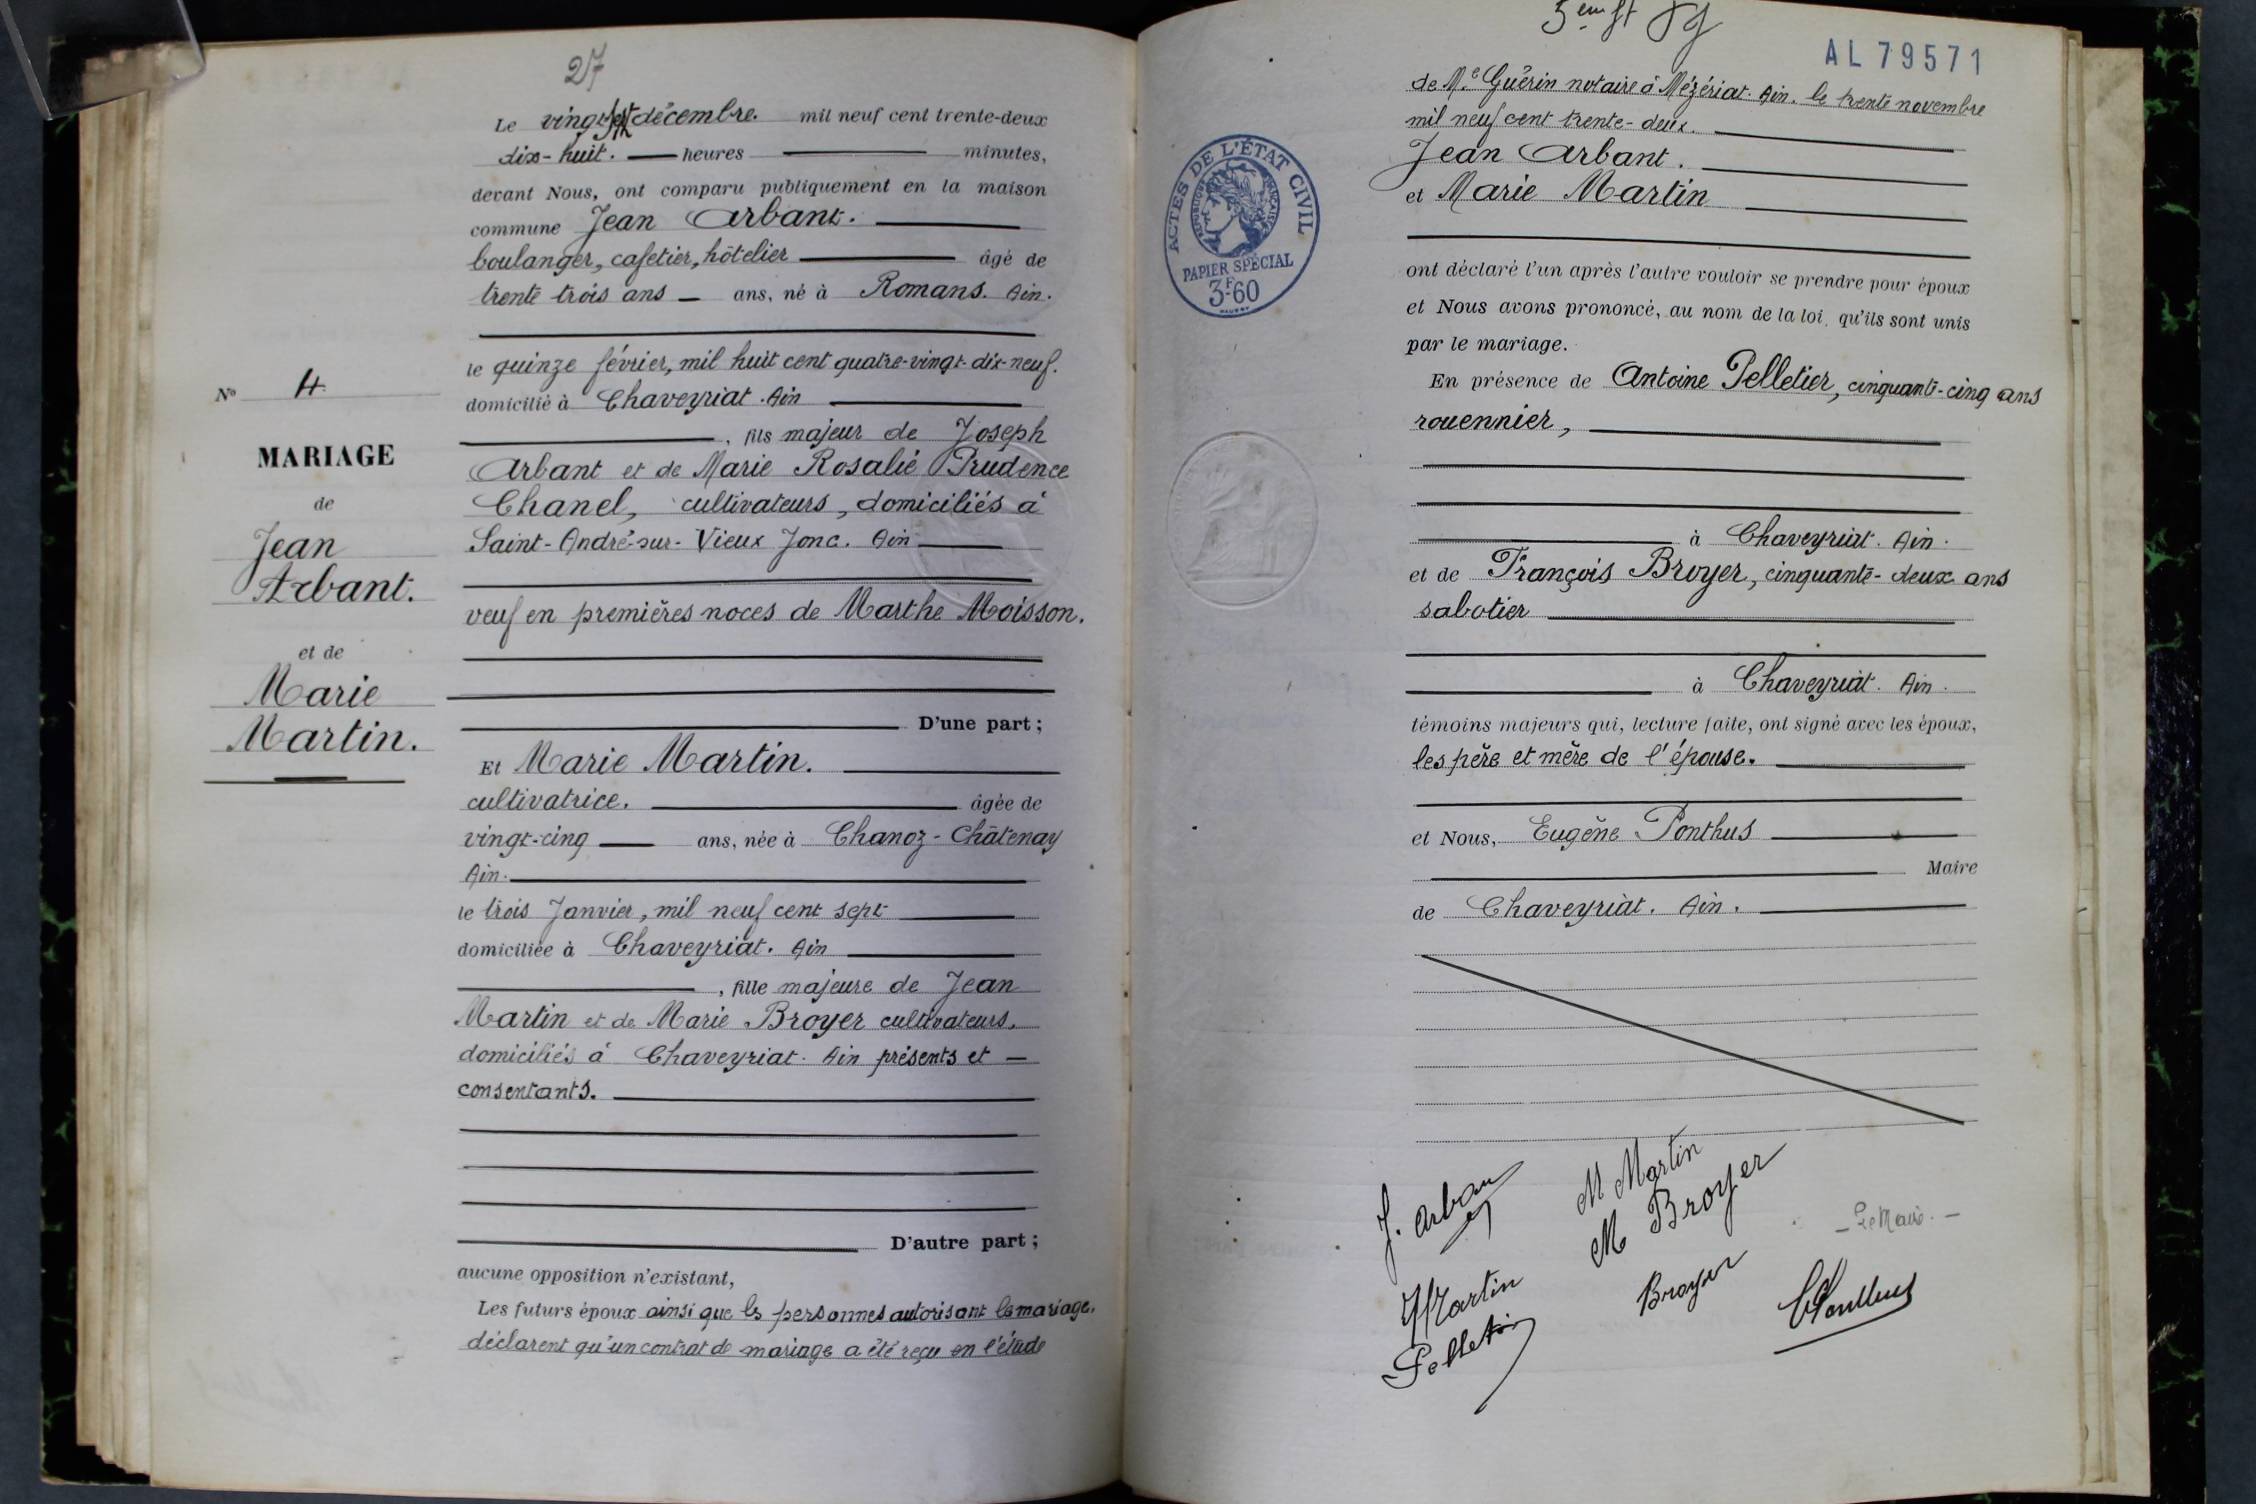 27
Le vingt-sept décembre. mil neuf cent trente-deux
dix-huit. heures minutes,
devant Nous, ont comparu publiquement en la maison
commune Jean Arbant.
boulanger, cafetier, hôtelier âgé de
trente trois ans ans, né à Romans. Ain.
le quinze février, mil huit cent quatre-vingt-dix-neuf.
domicilié à Chaveyriat. Ain
, fils majeur de Joseph
Arbant et de Marie Rosalie Prudence
Chanel, cultivateurs, domiciliés à
Saint-André-sur-Vieux Jonc. Ain
veuf en premières noces de Marthe Moisson.
D'une part ;
Et Marie Martin.
cultivatrice. âgée de
vingt-cinq ans, née à Chanoz-Châtenay
Ain.
le trois Janvier, mil neuf cent sept
domiciliée à Chaveyriat. Ain
, fille majeure de Jean
Martin et de Marie Broyer cultivateurs,
domiciliés à Chaveyriat. Ain présents et
consentants.
D'autre part ;
aucune opposition n'existant,
Les futurs époux ainsi que les personnes autorisant le mariage,
déclarent qu'un contrat de mariage a été reçu en l'étude
N° 4
MARIAGE
de
Jean
Arbant.
et de
Marie
Martin.
AL 79571
de Me Guérin notaire à Mézériat. Ain. le trente novembre
mil neuf cent trente-deux.
Jean Arbant.
et Marie Martin
ont déclaré l'un après l'autre vouloir se prendre pour époux
et Nous avons prononcé, au nom de la loi, qu'ils sont unis
par le mariage.
En présence de Antoine Pelletier, cinquante-cinq ans
rouennier,
à Chaveyriat. Ain.
et de François Broyer, cinquante-deux ans
sabotier
à Chaveyriat. Ain.
témoins majeurs qui, lecture faite, ont signé avec les époux,
les père et mère de l'épouse.
et Nous, Eugène Ponthus
Maire
de Chaveyriat. Ain.
ACTES DE L'ÉTAT CIVIL
RÉPUBLIQUE FRANÇAISE
PAPIER SPÉCIAL
3F.60
J. Arbant
M Martin
M Broyer
Le Maire.
J Martin
Broyer
Pelletier